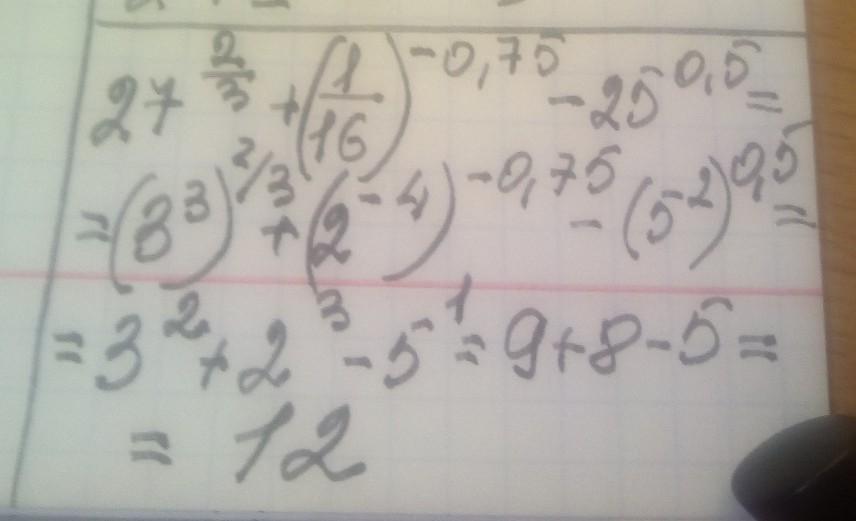 27^(2/3) + (1/16)^(-0,75) - 25^(0,5) =
= (3^3)^(2/3) + (2^(-4))^(-0,75) - (5^2)^(0,5) =
= 3^2 + 2^3 - 5^1 = 9 + 8 - 5 =
= 12